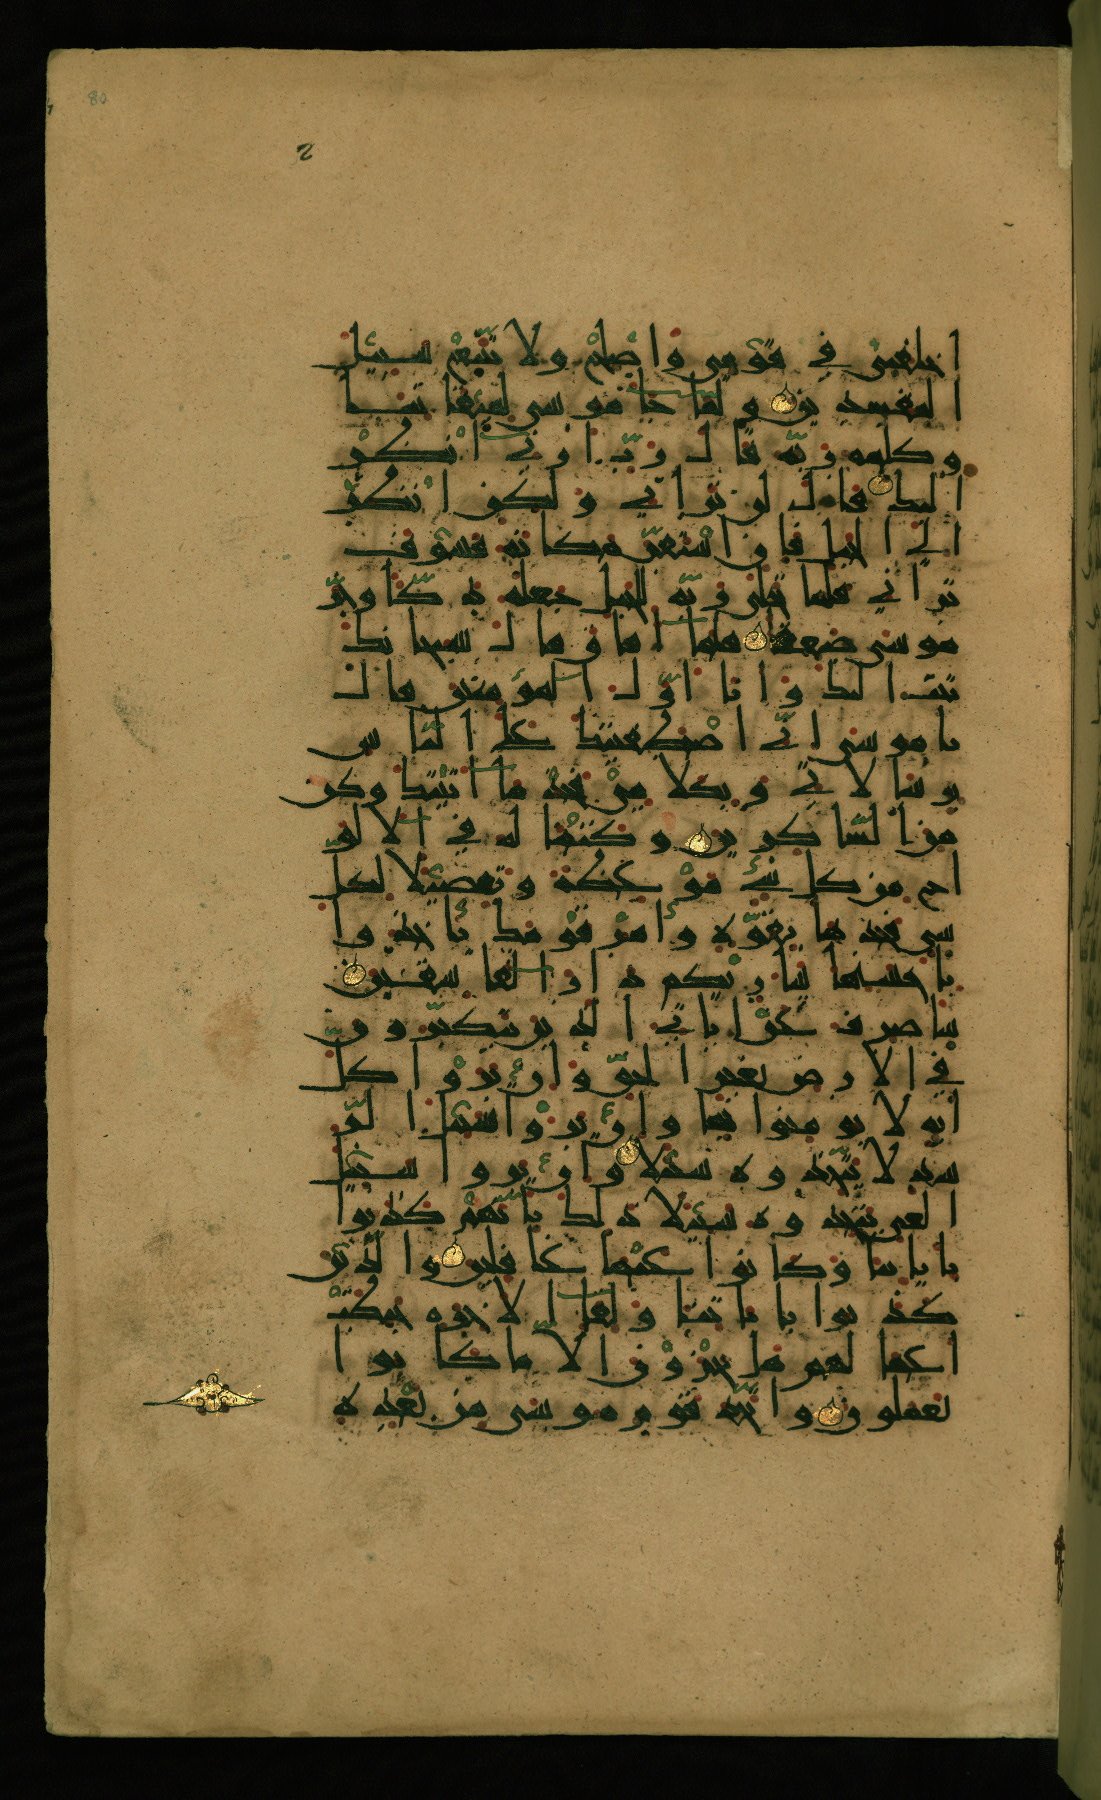 80
اخلفني في قومي واصلح ولا تتبع سبيل
المفسدين ولما جا موسى لميقاتنا
وكلمه ربه قال رب ارني انظر
اليك قال لن تراني ولكن انظر
الى الجبل فان استقر مكانه فسوف
تراني فلما تجلى ربه للجبل جعله دكا وخر
موسى صعقا فلما افاق قال سبحانك
تبت اليك وانا اول المؤمنين قال
يا موسى اني اصطفيتك على الناس
برسالاتي وبكلامي فخذ ما اتيتك وكن
من الشاكرين وكتبنا له في الالو
اح من كل شئ موعظة وتفصيلا لكل
شي فخذها بقوة وأمر قومك يأخذوا
باحسنها ساريكم دار الفاسقين
ساصرف عن اياتي الذين يتكبرون
في الارض بغير الحق وان يروا كل
اية لا يومنوا بها وان يروا سبيل الر
شد لا يتخذوه سبيلا وان يروا سبيل
الغي يتخذوه سبيلا ذلك بانهم كذبوا
باياتنا وكانوا عنها غافلين والذين
كذبوا باياتنا ولقا الاخره حبطت
اعمالهم هل يجزون الا ما كانوا
يعملون واتخذ قوم موسى من بعده